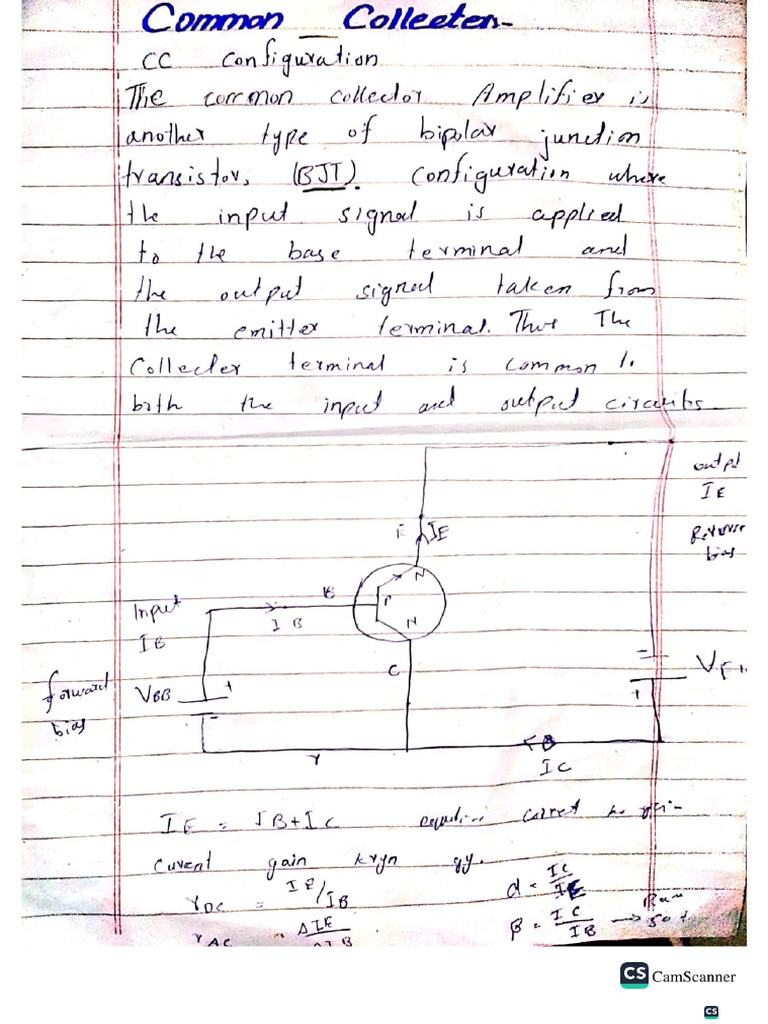 Common Collecter-
CC Configuration
The common collector Amplifier is
another type of bipolar junction
transistor, (BJT). Configuration where
the input signal is applied
to the base terminal and
the output signal taken from
the emitter terminal. Thus The
Collecter terminal is common to
both the input and output circuits
output
IE
Reverse
bias
E IE
N
B
P
Input
IB
I B
N
C
forward
bias
VBB
+
-
-
+
γ
B
IC
IE = IB+IC
Current gain
γDC = IE/IB
α = IC/IE
γAC = ΔIE/ΔIB
β = IC/IB → 50
CS CamScanner
CS